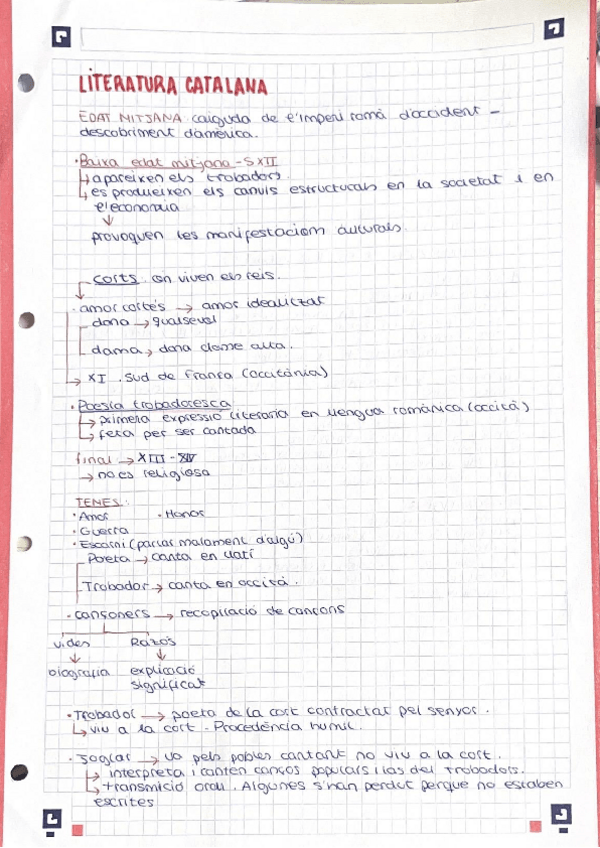 LITERATURA CATALANA
EDAT MITJANA: caiguda de l'imperi romà d'occident -
descobriment d'amèrica.
· Baixa edat mitjana - S XII
↳ apareixen els trobadors.
↳ es produeixen els canvis estructurals en la societat i en
l'economia
↓
provoquen les manifestacions culturals.
corts: on viven els reis.
· amor cortés → amor idealitzat
dona → qualsevol
dama → dona classe alta.
→ XI. Sud de França (occitània)
· Poesía trobadoresca
↳ primera expressió literaria en llengua romànica (occità)
↳ feta per ser cantada
final → XIII - XIV
→ no es religiosa
TEMES:
· Amor · Honor
· Guerra
· Escarni (parlar malament d'algú)
Poeta → canta en llatí
Trobador → canta en occità.
· cançoners → recopilació de cançons
vides Razós
↓ ↓
biografia explicació
significat
· Trobador → poeta de la cort contractat pel senyor.
↳ viu a la cort. Procedència humil.
· Joglar → va pels pobles cantant no viu a la cort.
↳ interpreta i canten cançós populars i las del trobadors.
↳ transmició oral. Algunes s'han perdut perque no estaben
escrites